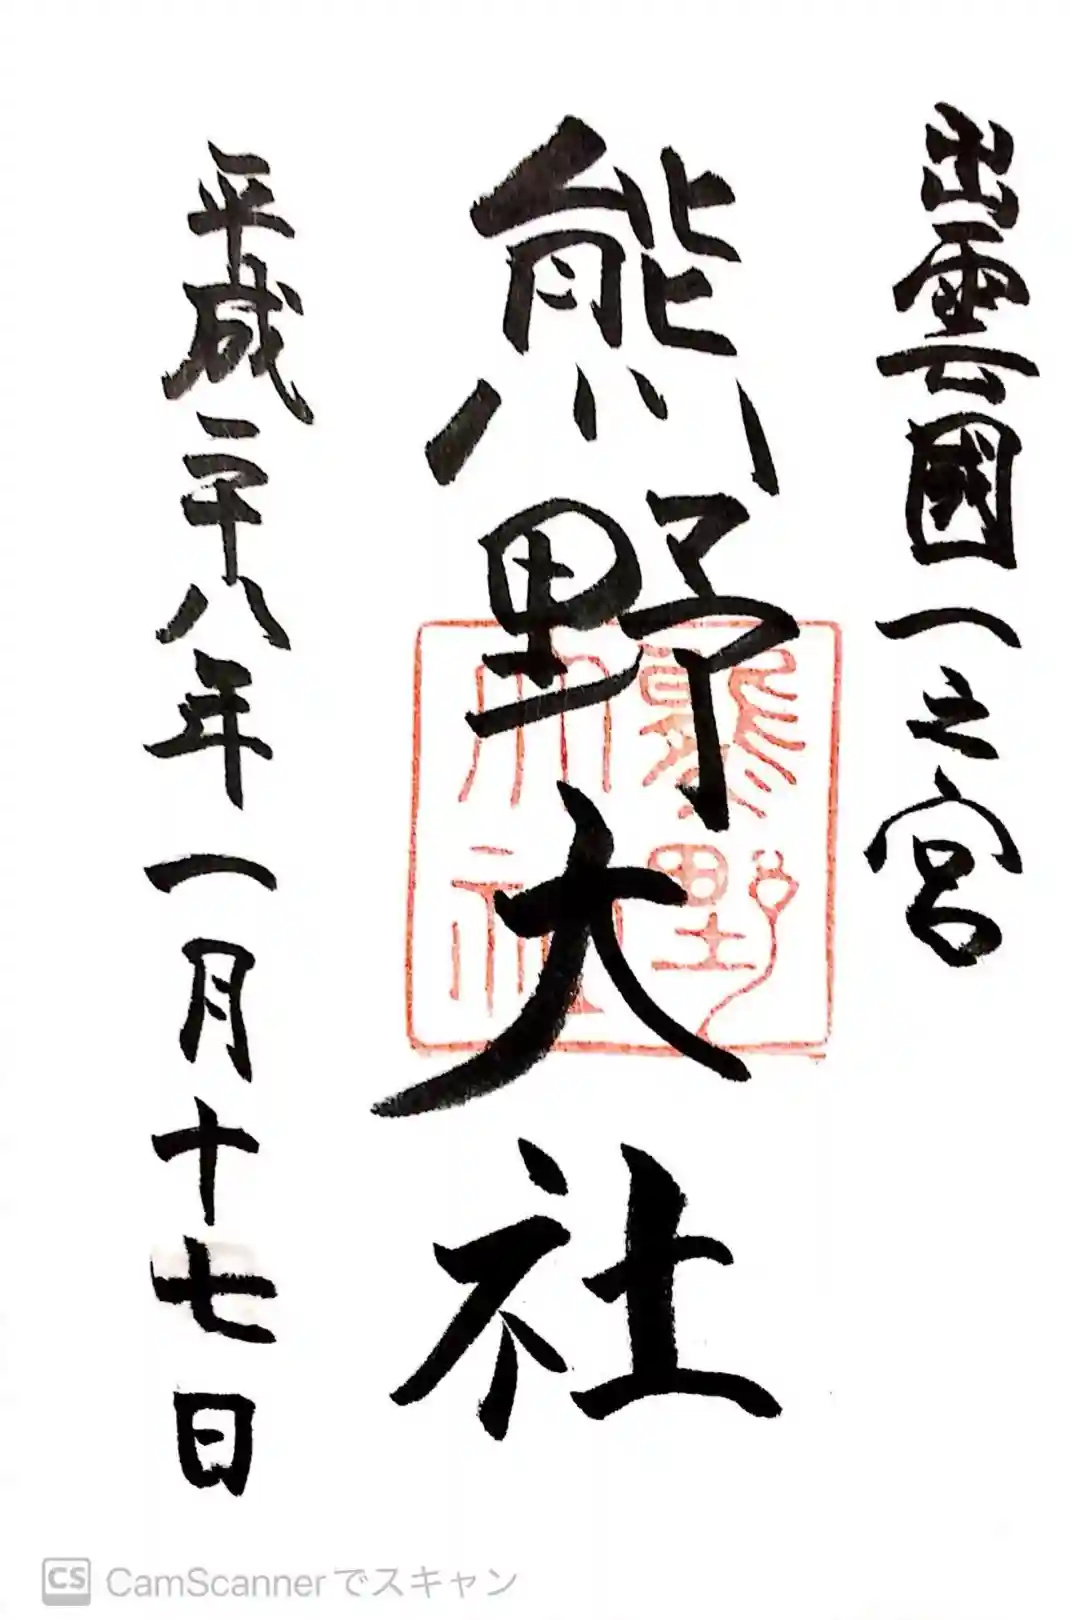 出雲國一之宮
熊野大社
熊野
大社
平成二十八年一月十七日
CS CamScannerでスキャン